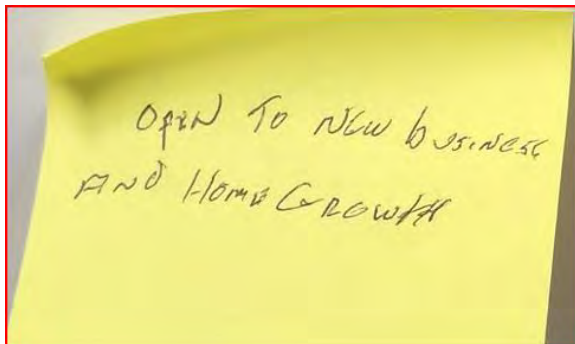 OPEN TO NEW bUSINESS
AND HOME GROWTH